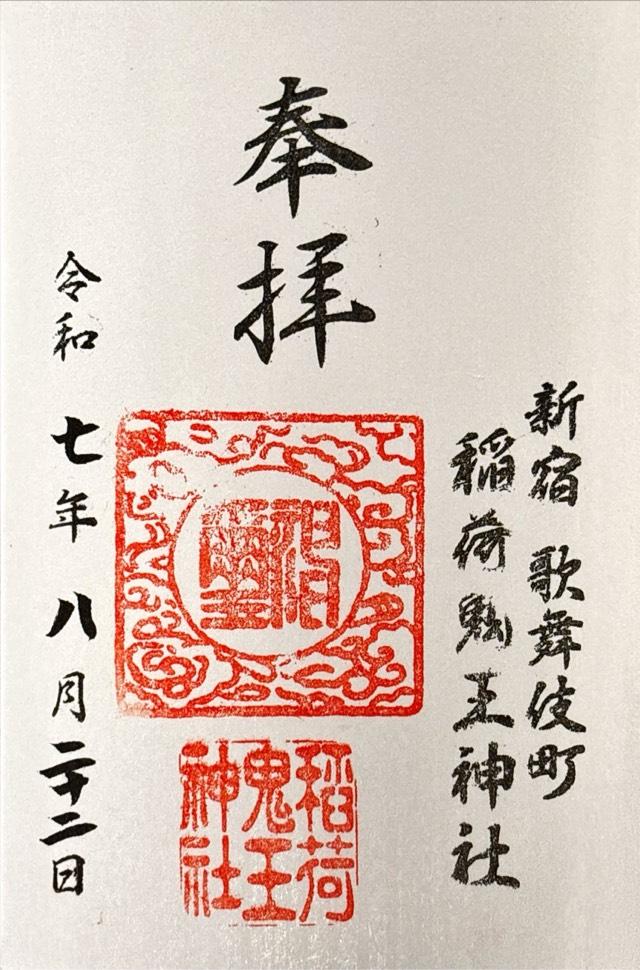 奉拝
新宿 歌舞伎町
稲荷鬼王神社
稲荷
鬼王
神社
令和 七年 八月 二十二日